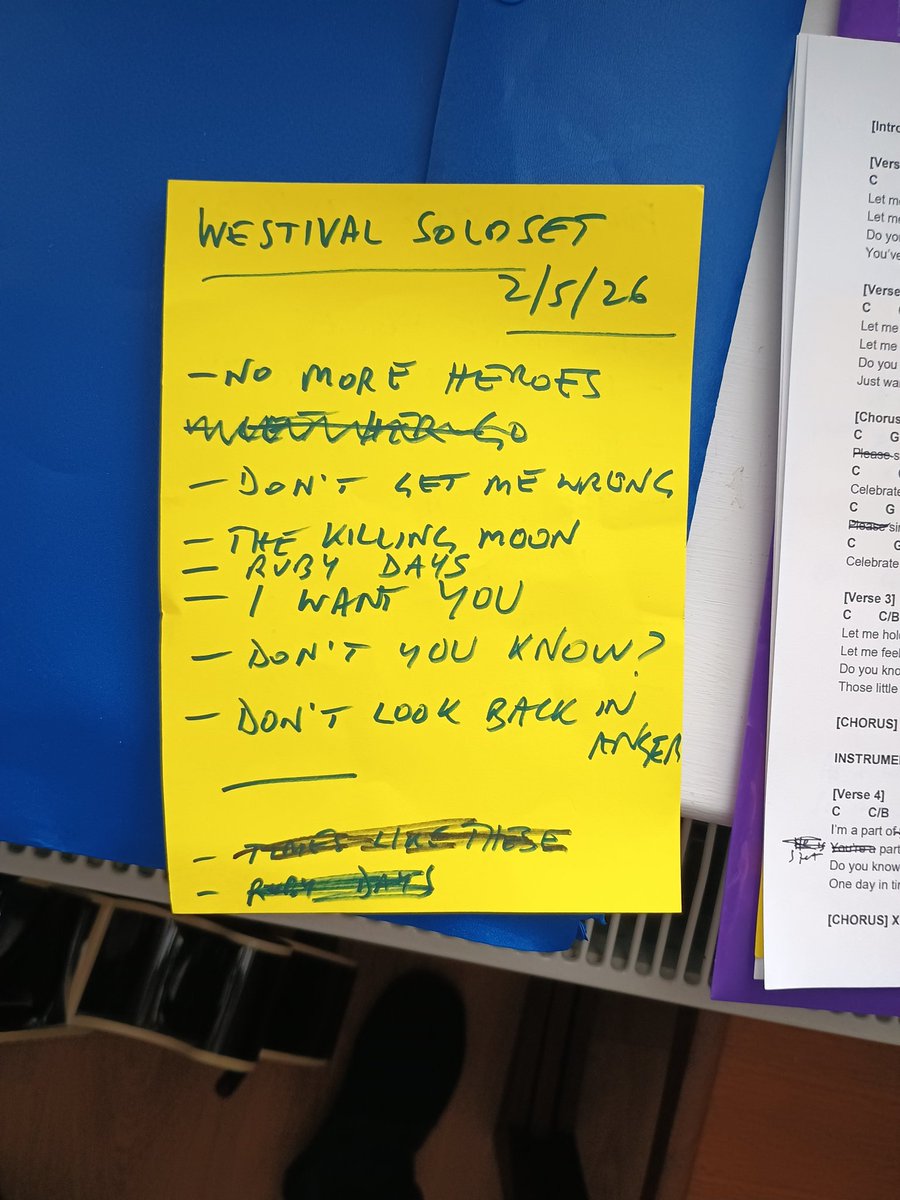 WESTIVAL SOLO SET
2/5/26
- NO MORE HEROES
- LET HER GO
- DON'T GET ME WRONG
- THE KILLING MOON
- RUBY DAYS
- I WANT YOU
- DON'T YOU KNOW?
- DON'T LOOK BACK IN
ANGER
- TIMES LIKE THESE
- RUBY DAYS
[Intro
[Vers
C
Let me
Let me
Do you
You've
[Verse
C
Let me
Let me
Do you
Just wa
[Chorus
C G
Please si
C
Celebrate
C G
Please sin
C G
Celebrate
[Verse 3]
C C/B
Let me hol
Let me feel
Do you kno
Those little
[CHORUS]
INSTRUME
[Verse 4]
C C/B
I'm a part of
You're a part
Do you know
One day in tim
[CHORUS] X